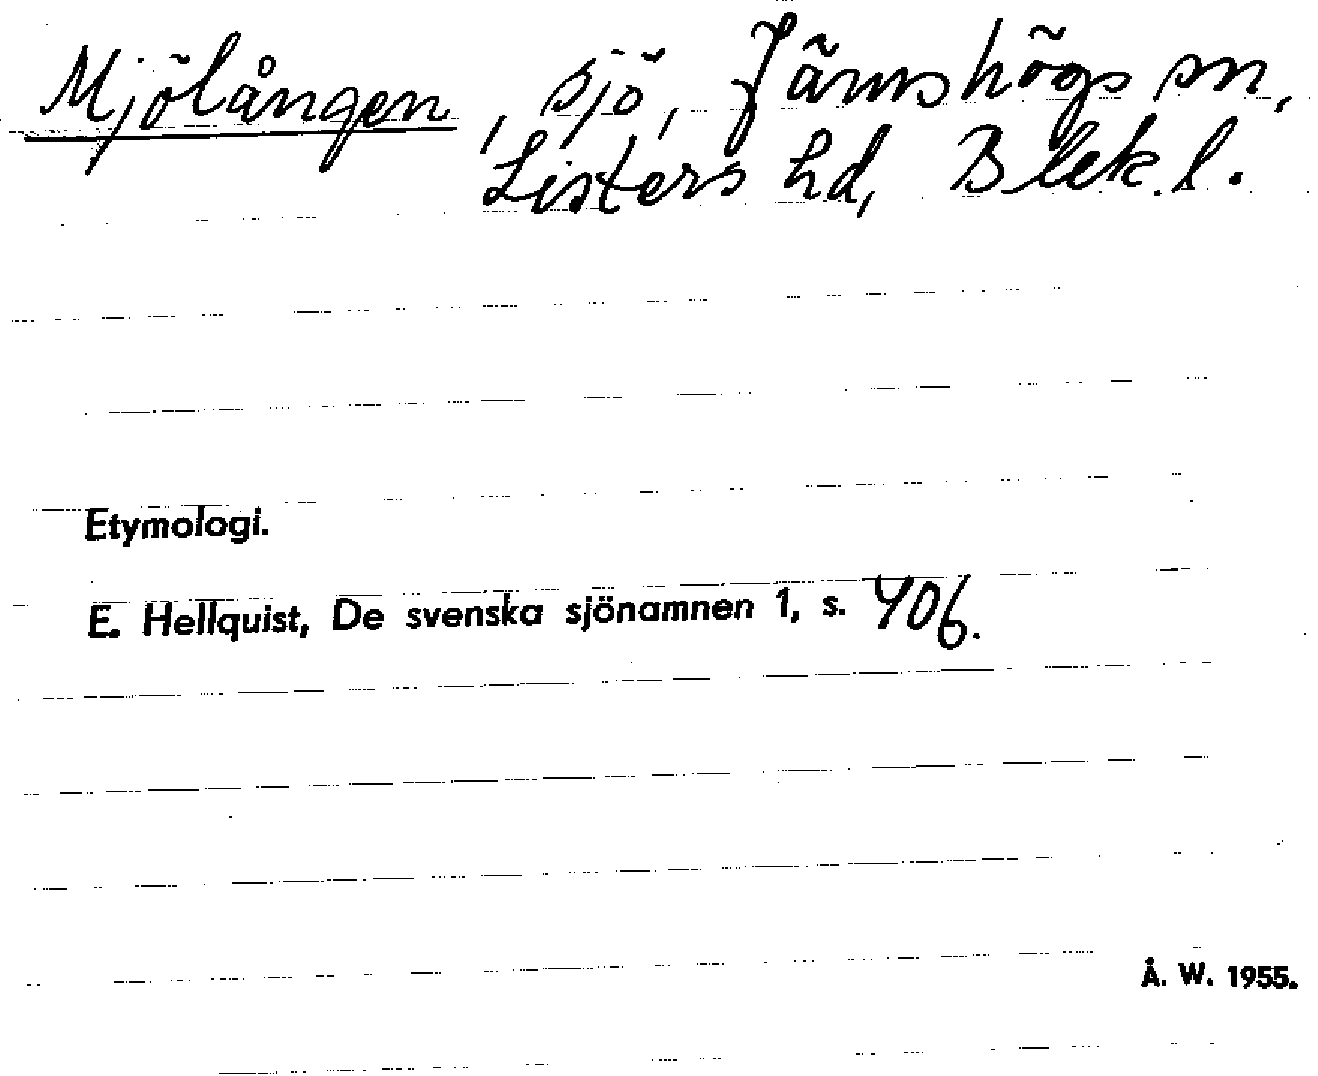 Mjölången, sjö, Jämshögs sn,
Listers hd, Blek. l.
Etymologi.
E. Hellquist, De svenska sjönamnen 1, s. 406.
Å. W. 1955.